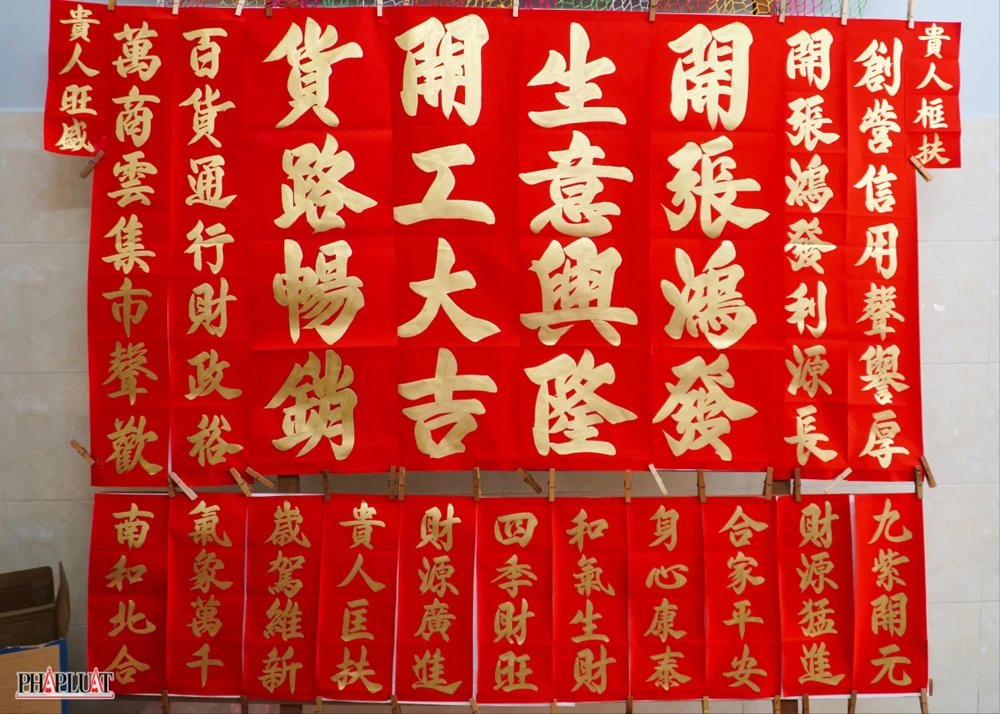 貴人框扶
創營信用聲譽厚
開張鴻發利源長
開張鴻發
生意興隆
開工大吉
貨路暢銷
百貨通行財政裕
萬商雲集市聲歡
貴人旺盛
九紫開元
財源猛進
合家平安
身心康泰
和氣生財
四季財旺
財源廣進
貴人匡扶
歲駕維新
氣象萬千
南和北合
PHÁPLUẬT